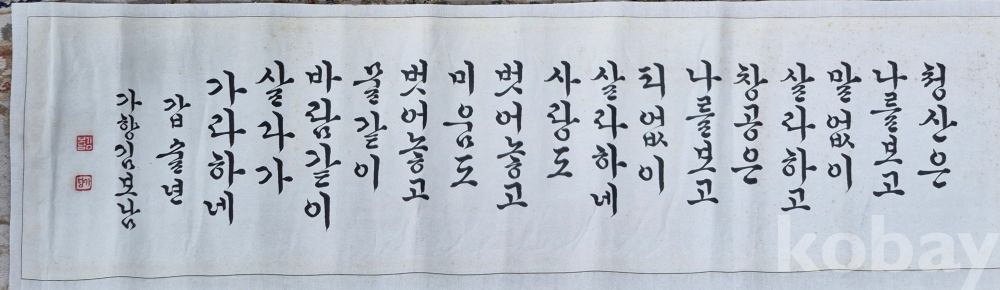 청산은
나를보고
말없이
살라하고
창공은
나를보고
티없이
살라하네
사랑도
벗어놓고
미움도
벗어놓고
물같이
바람같이
살라가
가라하네
갑술년
가향김보남
kobay